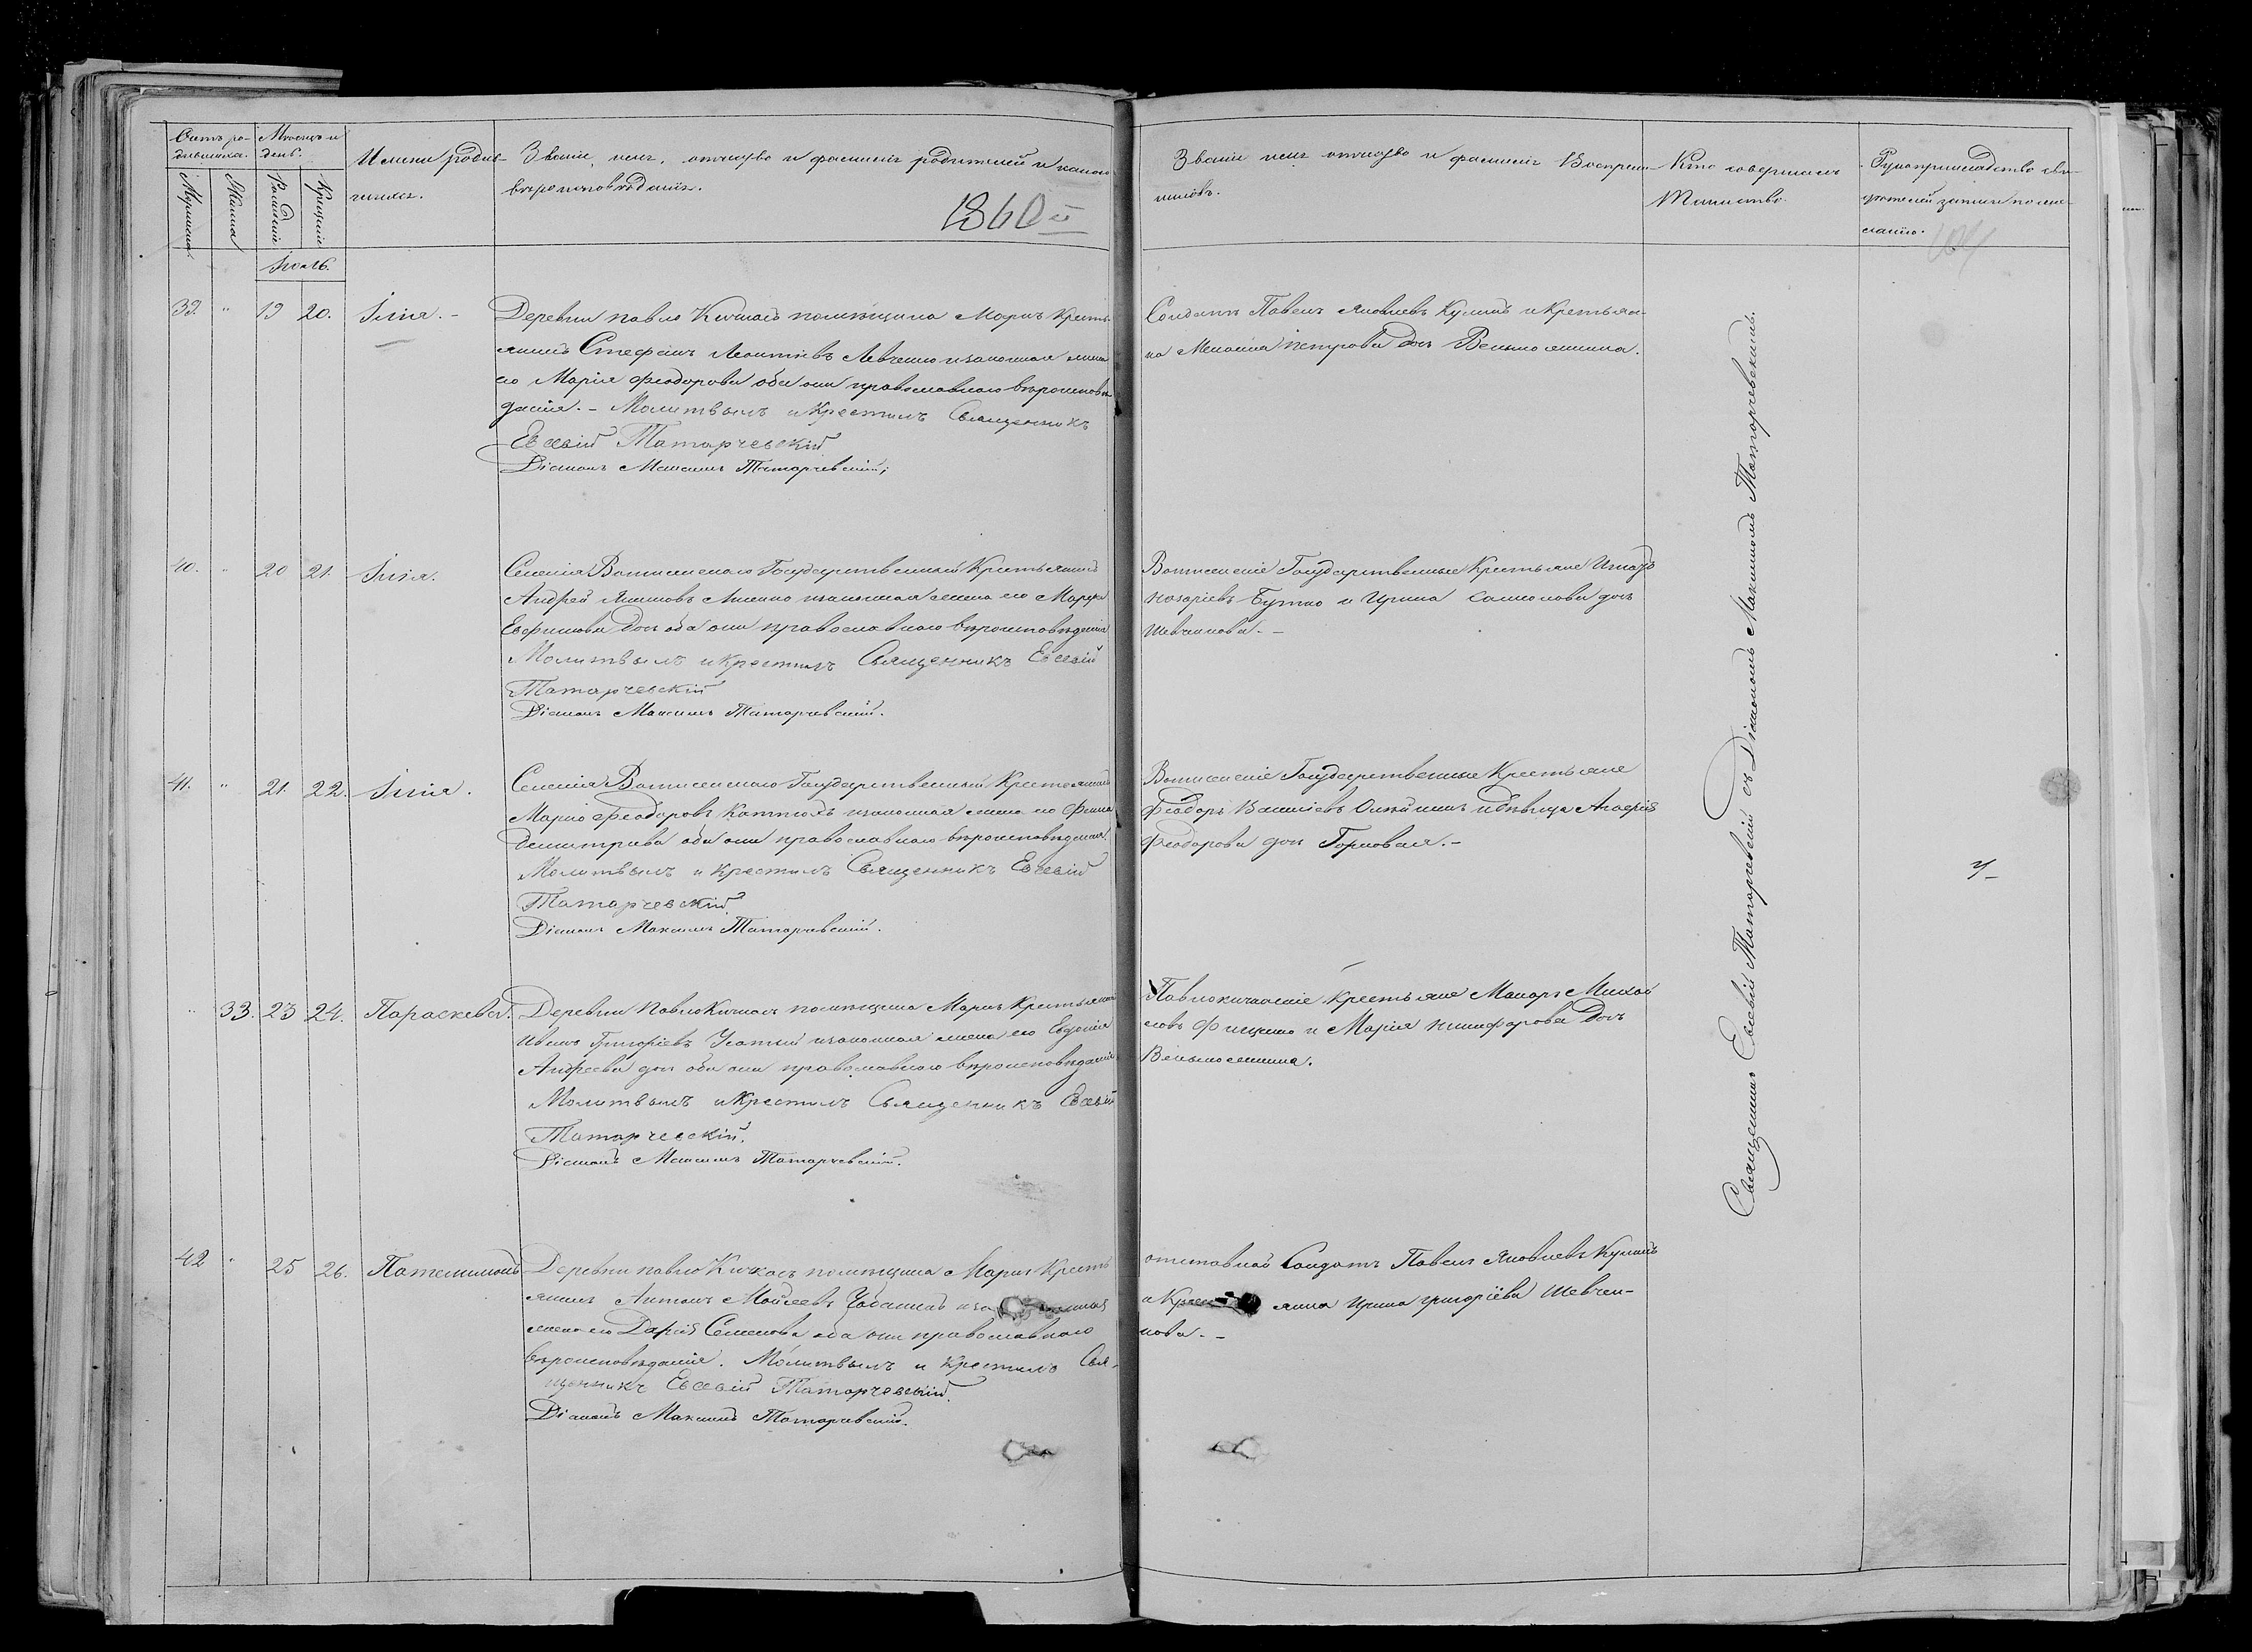 Счетъ ро-
дившихся.
Мѣсяцъ и
день.
Мужеска
Женска
Рожденія
Крещенія
Имена родив-
шихся.
Званіе, имя, отчество и фамилія родителей и какого
вѣроисповѣданія.
1860й
Званіе имя отчество и фамилія Воспріем-
никовъ.
Кто совершалъ
Таинство.
Рукоприкладство сви-
дѣтелей записи по же-
ланію.
Іюль.
39. " 19 20. Илія. -
Деревни Павло Кичкаса помѣщика Маркъ Кресть-
янинъ Стефанъ Леонтіевъ Левченко и законная жена
его Марія Феодорова оба они православнаго вѣроисповѣ-
данія. - Молитвилъ и Крестилъ Священникъ
Евсевій Татарчевскій
Діаконъ Максимъ Татарчевскій;
Солдатъ Павелъ Яковлевъ Кулишъ и Крестьян-
ка Меланія Петрова дочь
40. " 20 21. Илія.
Селенія Государственный Крестьянинъ
Андрей и законная жена его Марфа
Евфимова дочь оба они православнаго вѣроисповѣданія
Молитвилъ и Крестилъ Священникъ Евсевій
Татарчевскій
Діаконъ Максимъ Татарчевскій.
Государственные Крестьяне Игнатъ
Назаріевъ Бутко и Ирина дочь
Шевченкова. -
41. " 21. 22. Илія.
Селенія Государственный Крестьянинъ
Марко Феодоровъ и законная жена его
Димитріева оба они православнаго вѣроисповѣданія
Молитвилъ и Крестилъ Священникъ Евсевій
Татарчевскій.
Діаконъ Максимъ Татарчевскій.
Государственные Крестьяне
Феодоръ Василіевъ и дѣвица
Феодорова дочь Горловая. -
" 33. 23 24. Параскева.
Деревни Павло Кичкасъ помѣщика Маркъ Крестьянинъ
Иванъ Григоріевъ Усатый и законная жена его Евдокія
Андреева дочь оба они православнаго вѣроисповѣданія
Молитвилъ и Крестилъ Священникъ Евсевій
Татарчевскій.
Діаконъ Максимъ Татарчевскій.
Павлокичкаскіе Крестьяне Макаръ Михай
ловъ и Марія Никифорова дочь
42 " 25 26. Пателимонъ
Деревни Павло Кичкасъ помѣщика Маркъ Кресть
янинъ Антонъ Мойсеевъ
жена его Дарія Семенова оба они православнаго
вѣроисповѣданія. Молитвилъ и Крестилъ Свя-
щенникъ Евсевій Татарчевскій.
Діаконъ Максимъ Татарчевскій.
отставной Солдатъ Павелъ Яковлевъ Кулишъ
и Крес янка Ирина Григоріева Шевчен-
кова. -
Священникъ Евсевій Татарчевскій съ Діакономъ Максимомъ Татарчевскимъ.